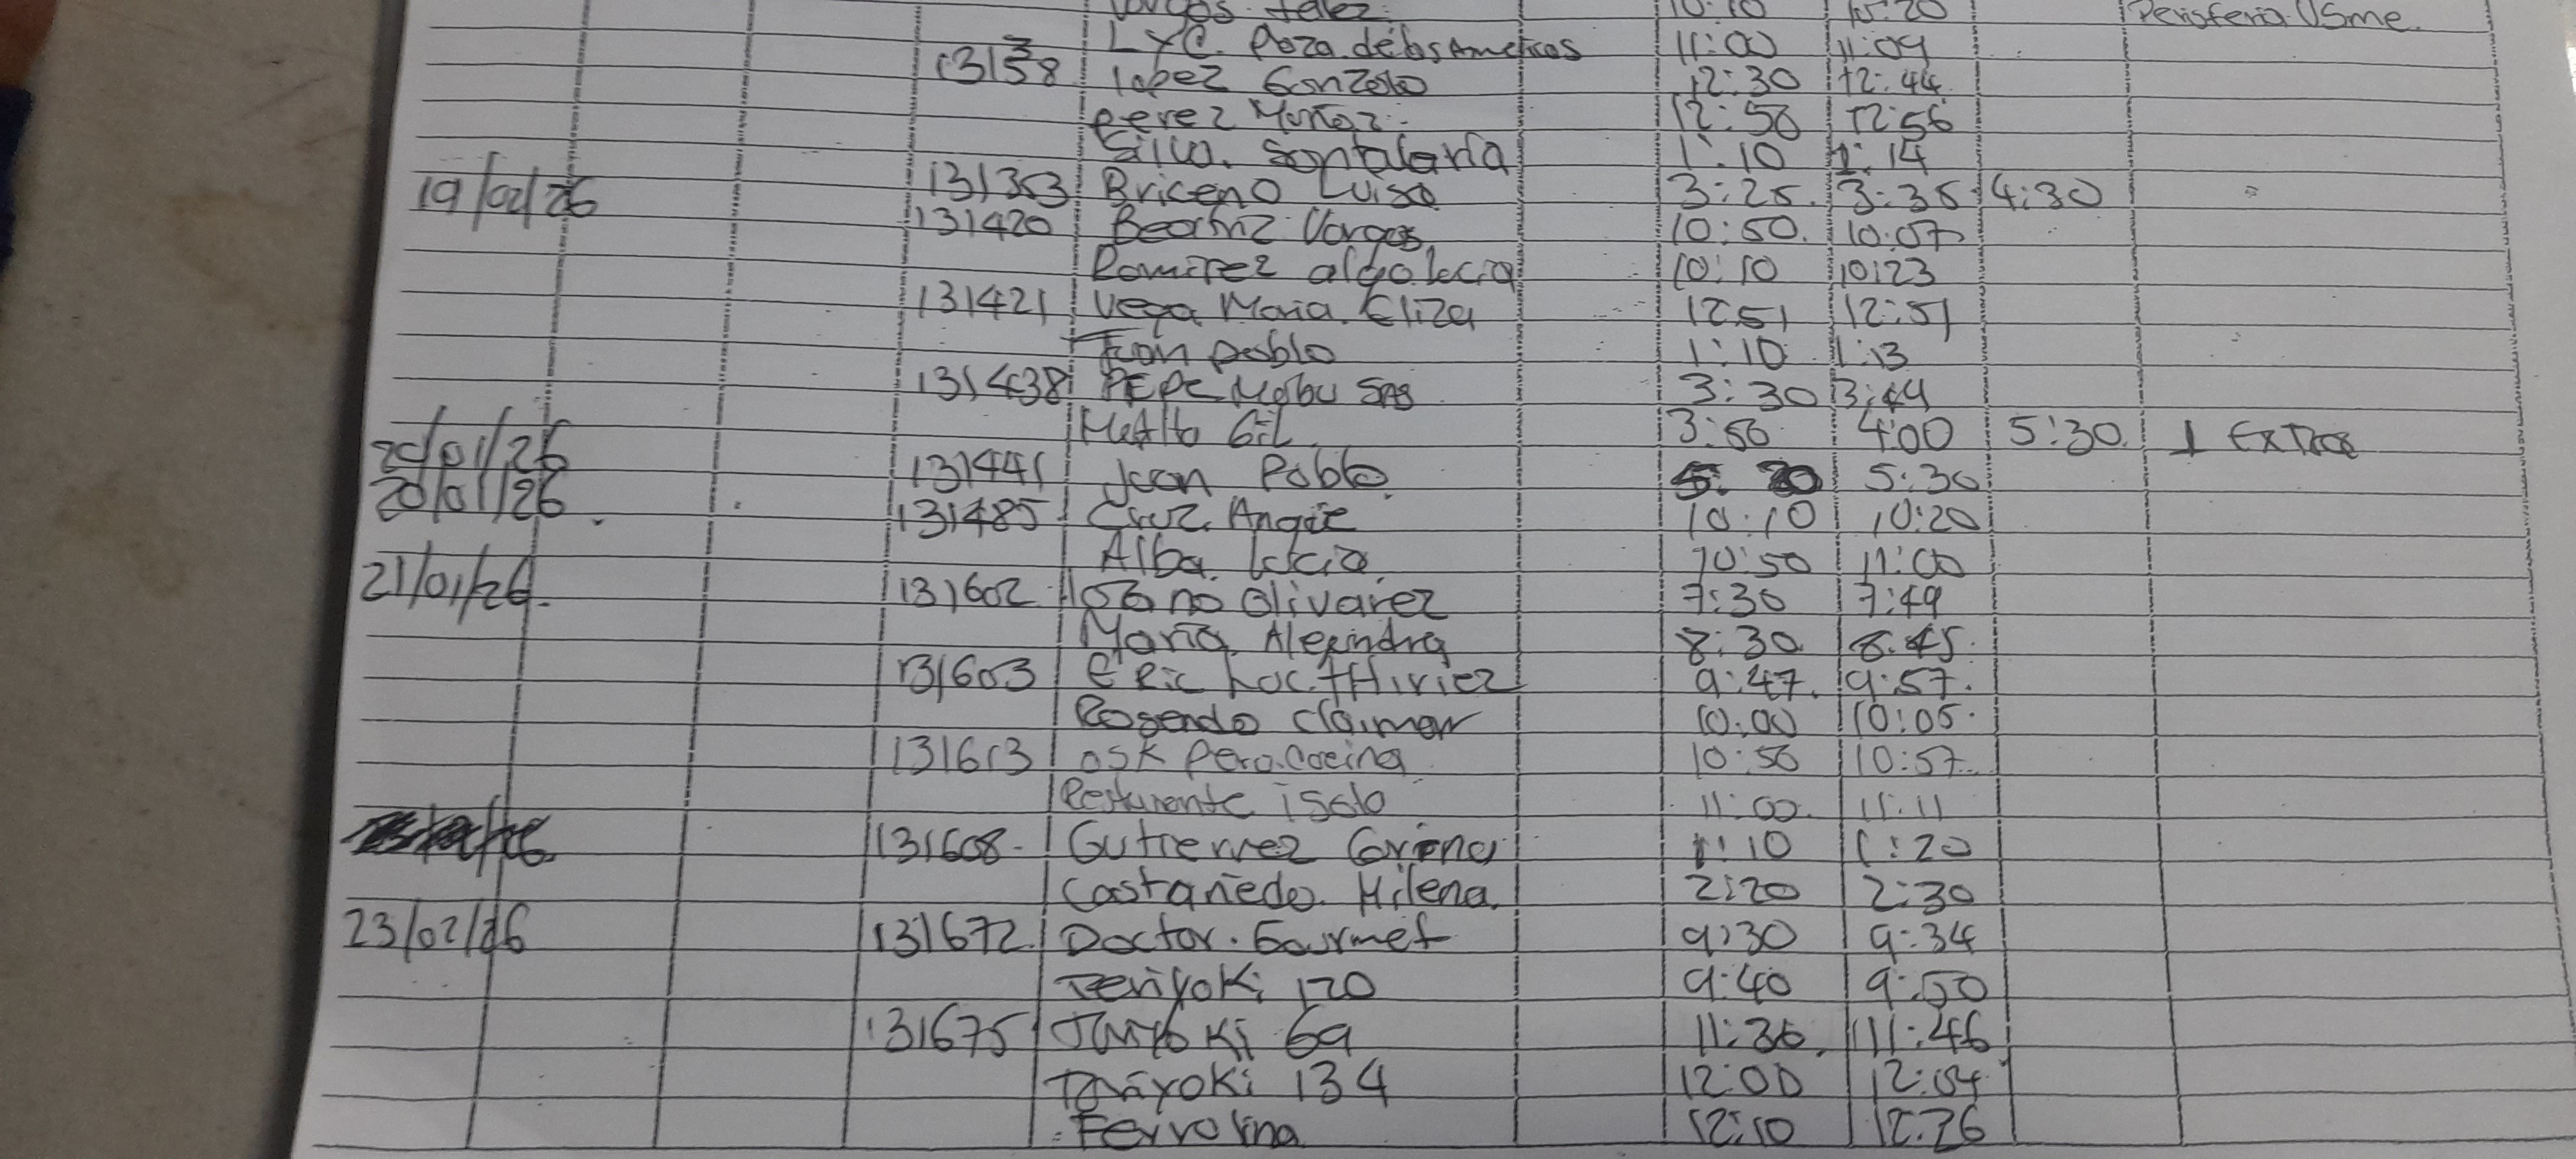 Vargos. telez. 10:10 10:20 Perisferia Usme.
LyC. Plaza de las Americas 11:00 11:09
13158 lopez Gonzalo 12:30 12:44
perez Muñoz. 12:50 12:56
Silva. Santalaria 1:10 1:14
19/02/26 131353 Briceno Luisa 3:25. 3:35 4:30
131420 Beatriz Vargas, 10:50. 10:07
Ramirez 10:10 10:23
131421 Vega Maria. Eliza 12:51 12:51
Juan pablo 1:10 1:13
131438 PEPE Mabu SAS 3:30 3:44
Gil. 3:50 4:00 5:30. 1 Extras
20/01/26 131441 Juan Pablo. 5:30
20/01/26. 131485 Cruz. Angie 10:10 10:20
Alba. lucia. 10:50 11:00
21/01/26. 131602 olivarez 7:30 7:49
Maria. Alejandra 8:30 8:45.
131603 Eric 9:47. 9:57.
Rosendo 10:00 10:05.
131613 OSK Pera.Cocina 10:50 10:57.
Resturante isolo 11:00. 11:11
131608. Gutierrez Corina 1:10 1:20
Castañeda. Milena. 2:20 2:30
23/02/26 131672. Doctor. Gourmet 9:30 9:34
Teriyoki 120 9:40 9:50
131675 69 11:36. 11:46
134 12:00 12:04
Ferrolina 12:10 12:26